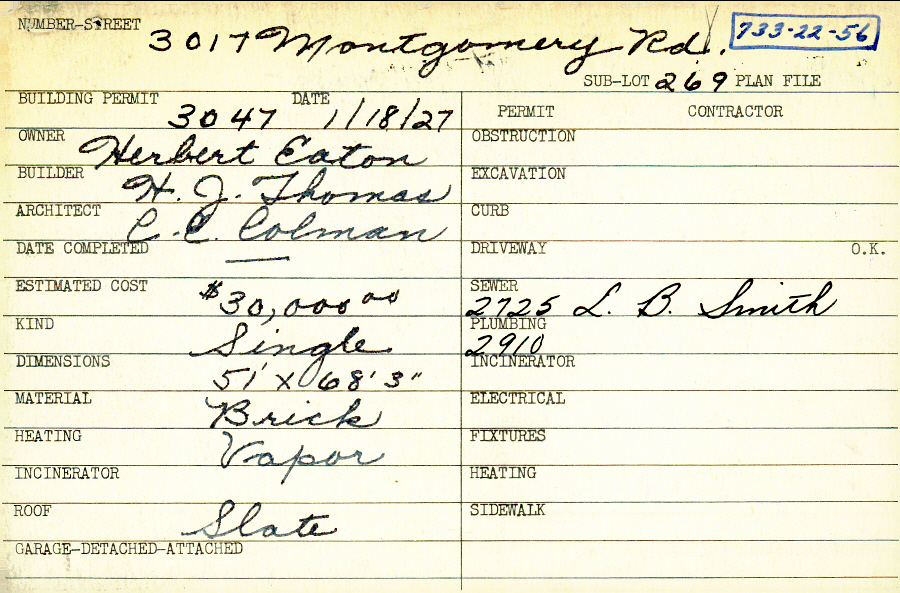 NUMBER-STREET
3017 Montgomery Rd. 733-22-56
SUB-LOT 269 PLAN FILE
BUILDING PERMIT 3047 DATE 1/18/27
PERMIT CONTRACTOR
OWNER Herbert Eaton
OBSTRUCTION
BUILDER H. J. Thomas
EXCAVATION
ARCHITECT C. C. Colman
CURB
DATE COMPLETED —
DRIVEWAY O.K.
ESTIMATED COST $30,000 00
SEWER 2725 L. B. Smith
KIND Single
PLUMBING 2910
DIMENSIONS 51' X 68' 3"
INCINERATOR
MATERIAL Brick
ELECTRICAL
HEATING Vapor
FIXTURES
INCINERATOR
HEATING
ROOF Slate
SIDEWALK
GARAGE-DETACHED-ATTACHED